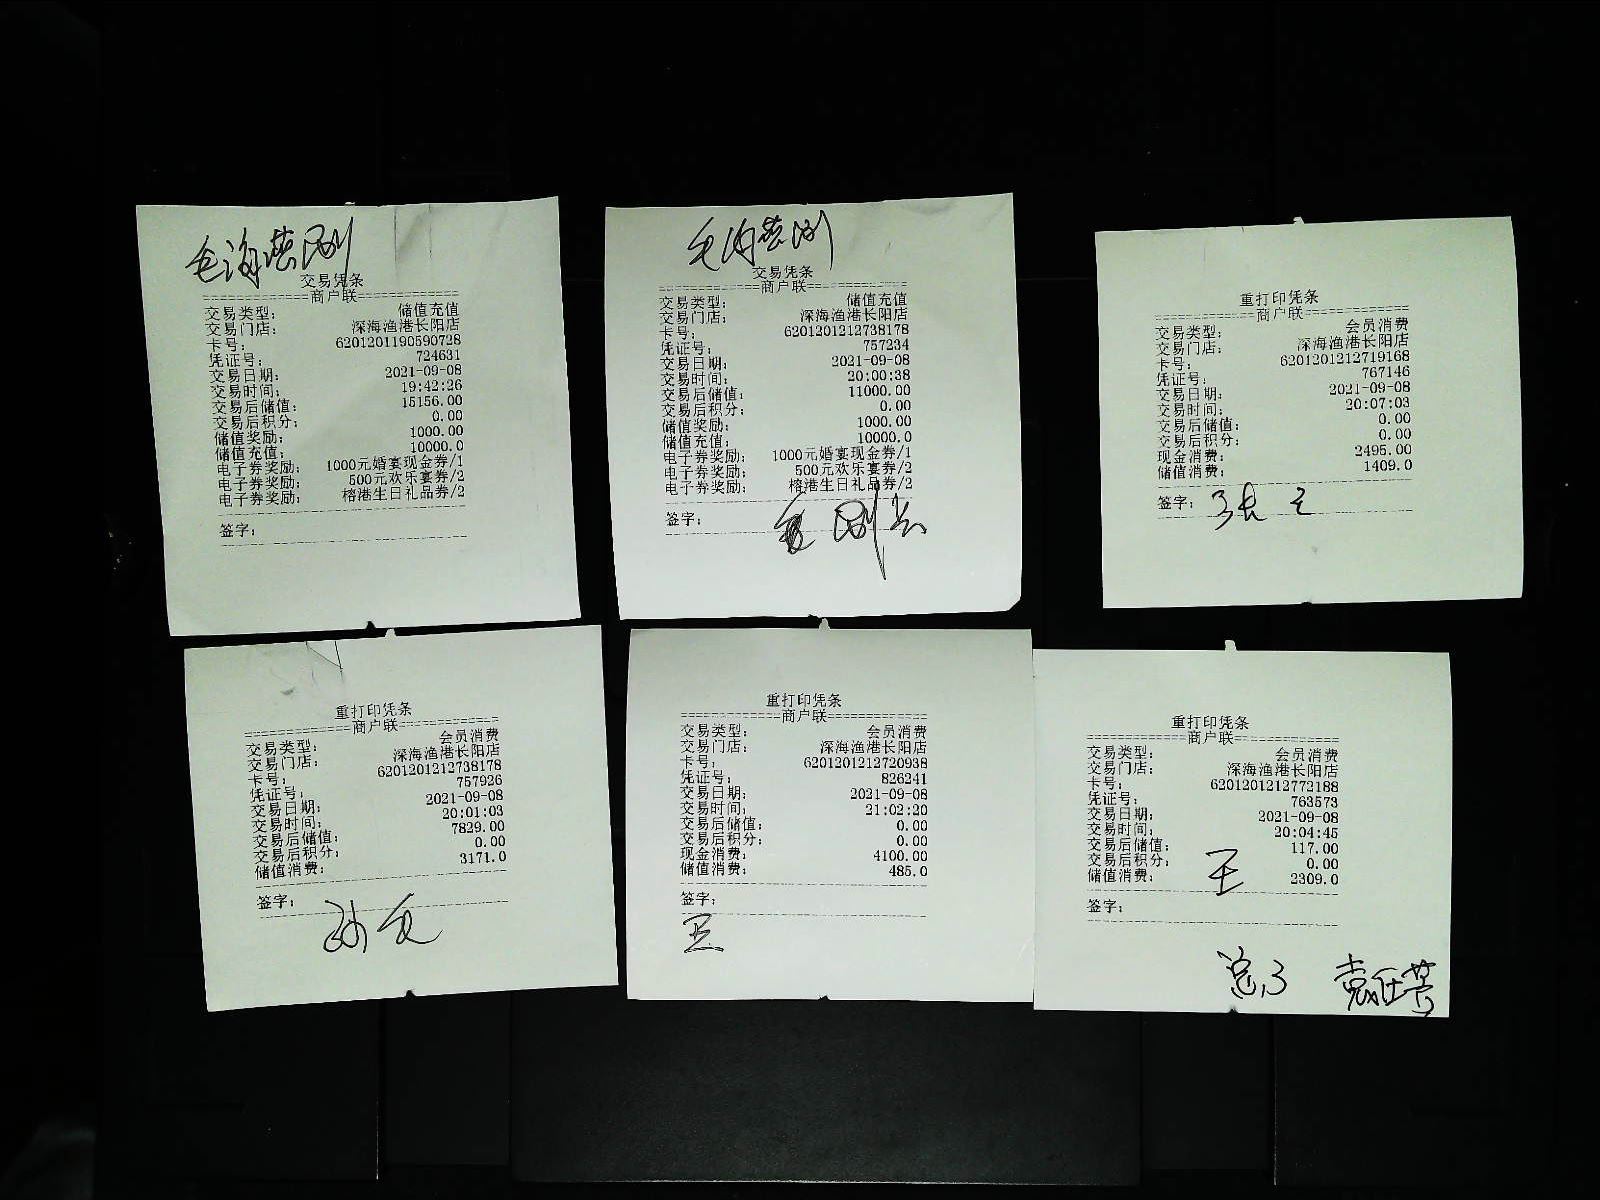 交易凭条
==============商户联==============
交易类型： 储值充值
交易门店： 深海渔港长阳店
卡号： 6201201190590728
凭证号： 724631
交易日期： 2021-09-08
交易时间： 19:42:26
交易后储值： 15156.00
交易后积分： 0.00
储值奖励： 1000.00
储值充值： 10000.0
电子券奖励： 1000元婚宴现金券/1
电子券奖励： 500元欢乐宴券/2
电子券奖励： 榕港生日礼品券/2
签字：
交易凭条
==============商户联==============
交易类型： 储值充值
交易门店： 深海渔港长阳店
卡号： 6201201212738178
凭证号： 757234
交易日期： 2021-09-08
交易时间： 20:00:38
交易后储值： 11000.00
交易后积分： 0.00
储值奖励： 1000.00
储值充值： 10000.0
电子券奖励： 1000元婚宴现金券/1
电子券奖励： 500元欢乐宴券/2
电子券奖励： 榕港生日礼品券/2
签字：
重打印凭条
==============商户联==============
交易类型： 会员消费
交易门店： 深海渔港长阳店
卡号： 6201201212719168
凭证号： 767146
交易日期： 2021-09-08
交易时间： 20:07:03
交易后储值： 0.00
交易后积分： 0.00
现金消费： 2495.00
储值消费： 1409.0
签字：
重打印凭条
==============商户联==============
交易类型： 会员消费
交易门店： 深海渔港长阳店
卡号： 6201201212738178
凭证号： 757926
交易日期： 2021-09-08
交易时间： 20:01:03
交易后储值： 7829.00
交易后积分： 0.00
储值消费： 3171.0
签字：
重打印凭条
==============商户联==============
交易类型： 会员消费
交易门店： 深海渔港长阳店
卡号： 6201201212720938
凭证号： 826241
交易日期： 2021-09-08
交易时间： 21:02:20
交易后储值： 0.00
交易后积分： 0.00
现金消费： 4100.00
储值消费： 485.0
签字：
重打印凭条
==============商户联==============
交易类型： 会员消费
交易门店： 深海渔港长阳店
卡号： 6201201212772188
凭证号： 763573
交易日期： 2021-09-08
交易时间： 20:04:45
交易后储值： 117.00
交易后积分： 0.00
储值消费： 2309.0
王
签字：